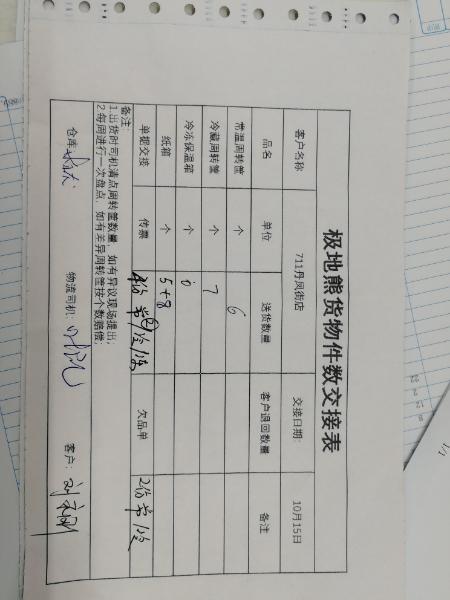 极地熊货物件数交接表
客户名称 711丹凤街店 交接日期： 10月15日
品名 单位 送货数量 客户退回数量 备注
常温周转筐 个 6
冷藏周转筐 个 7
冷冻保温箱 个 0
纸箱 个 5+8
单据交接 传票 欠品单
备注：
1.出货时司机请点周转筐数量，如有异议现场提出；
2.每周进行一次盘点，如有差异周转筐按个数赔偿；
仓库： 物流司机： 客户：